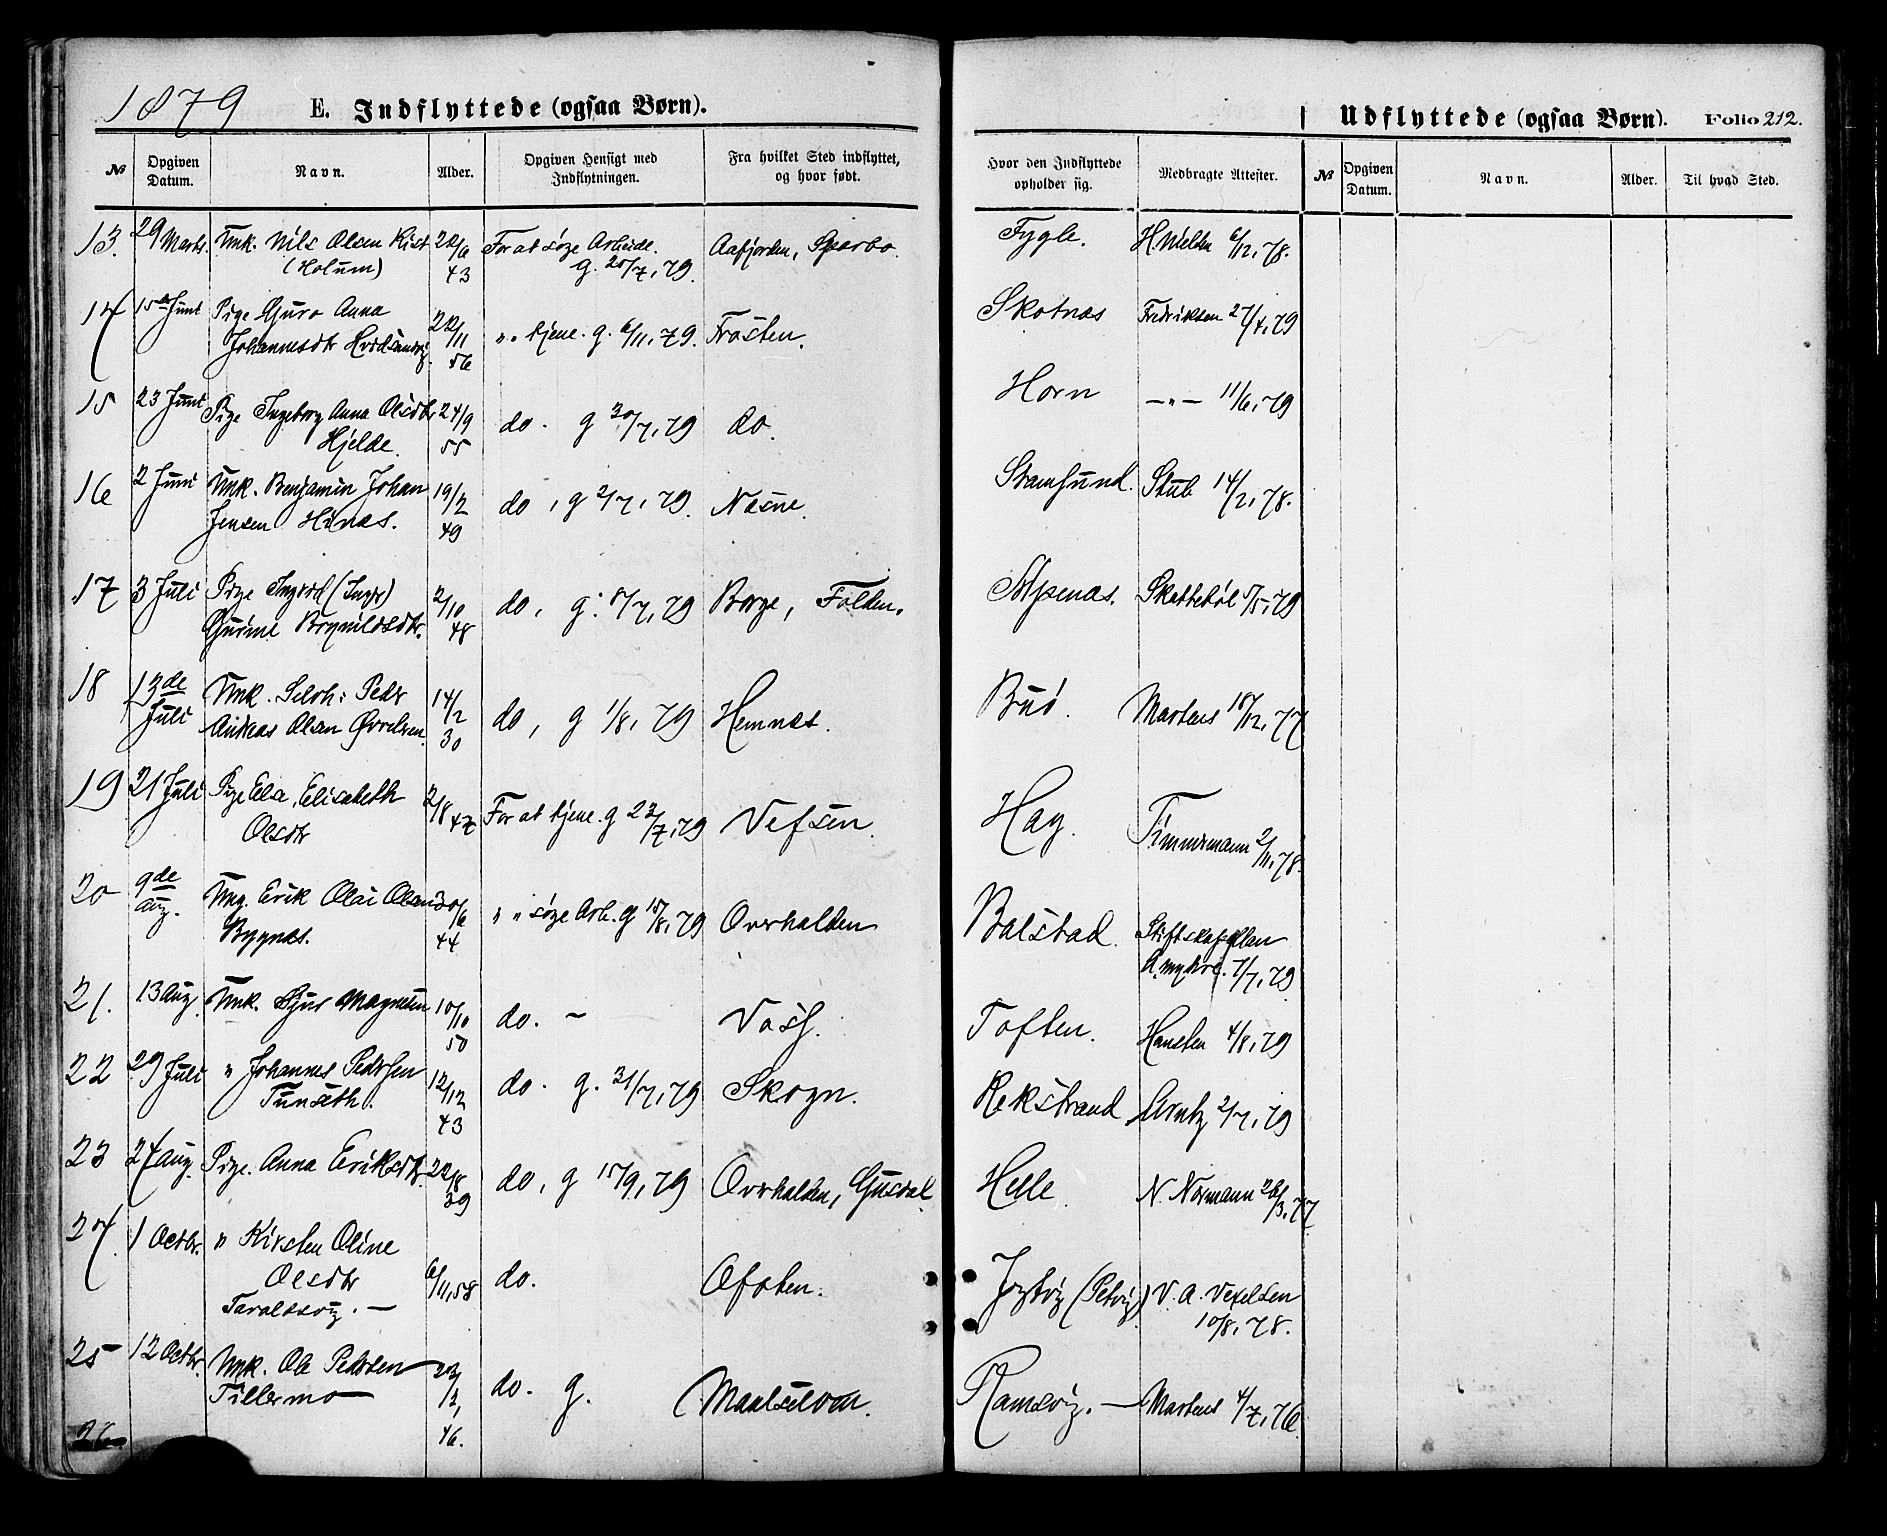 1879
E. Indflyttede (ogsaa Børn).
Udflyttede (ogsaa Børn). Folio 212.
№ Opgiven Datum. Navn. Alder. Opgiven Hensigt med Indflytningen. Fra hvilket Sted indflyttet, og hvor født. Hvor den Indflyttede opholder sig. Medbragte Attester. № Opgiven Datum. Navn. Alder. Til hvad Sted.
13. 29 Marts. Umk. Nils Olsen Rist 22/6 For at søge Arbeide. Aafjorden, Sparbo. Fygle. 6/12,78.
(Holum) 43 g. 20/7,79.
14 15de Juni Pige Guro Anna 22/11 "" tjene. g. 6/11,79. Frosten. Skotnæs Fredriksen 27/4,79
Johannesdtr 56
15 23 Juni Pige Ingeborg Anna Olsdtr 24/9 do. g 30/7,79 do. Horn —"— 11/6,79
Hjelde. 55
16 2 Juni Umk. Benjamin Johan 19/2 do, g 2/7,79. Næsne. Stamsund. Stub 14/2,78.
Jensen Hinæs. 49
17 3 Juli Pige Ingvil (Inger) 2/10 do, g. 8/7,79 Borge, Folden. Alpenæs. 79
Gurine 48
18 13de Umk. Peder 14/2 do, g 1/8,79 Hemnæs. Buø. Martens 18/12,77
Juli Andreas Olsen 30
19 21 Juli Pige Elsa Elisabeth 2/8 47 For at tjene. g 23/7,79 Vefsen. Hag. Timmermann 2/11,78.
Olsdtr
20 9de Ung. Erik Olai Olsen 30/6 "" søge Arb. g 18/8,79 Overhalden Balstad. Stiftskapellan
Aug. Bygnæs. 44 A. Myhre. 7/7,79
21. 13 Aug. Umk. Sjur Magnesen 10/10 do. – Voss. Toften. Hansten 4/8,79
50
22 29 Juli " Johannes Pedersen 12/12 do. g. 31/7,79 Skogn. Rekstrand Arntz 2/7,79
Tunseth. 43
23 24 Aug. Pige. Anna Eriksdtr. 22/8 do, g 15/9,79 Overhalden, Helle. N. Normann 26/3,77
39
24. 1 Octbr. " Kirsten Oline
Olsdtr 6/11,58 do. Afosten. V. A. Vexelsen
10/8,78.
25 12 Octbr. Umk. Ole Pedersen do. g. Maalselven. Ramsvig. — Martens 4/7,76
Tillermo — 46.
26